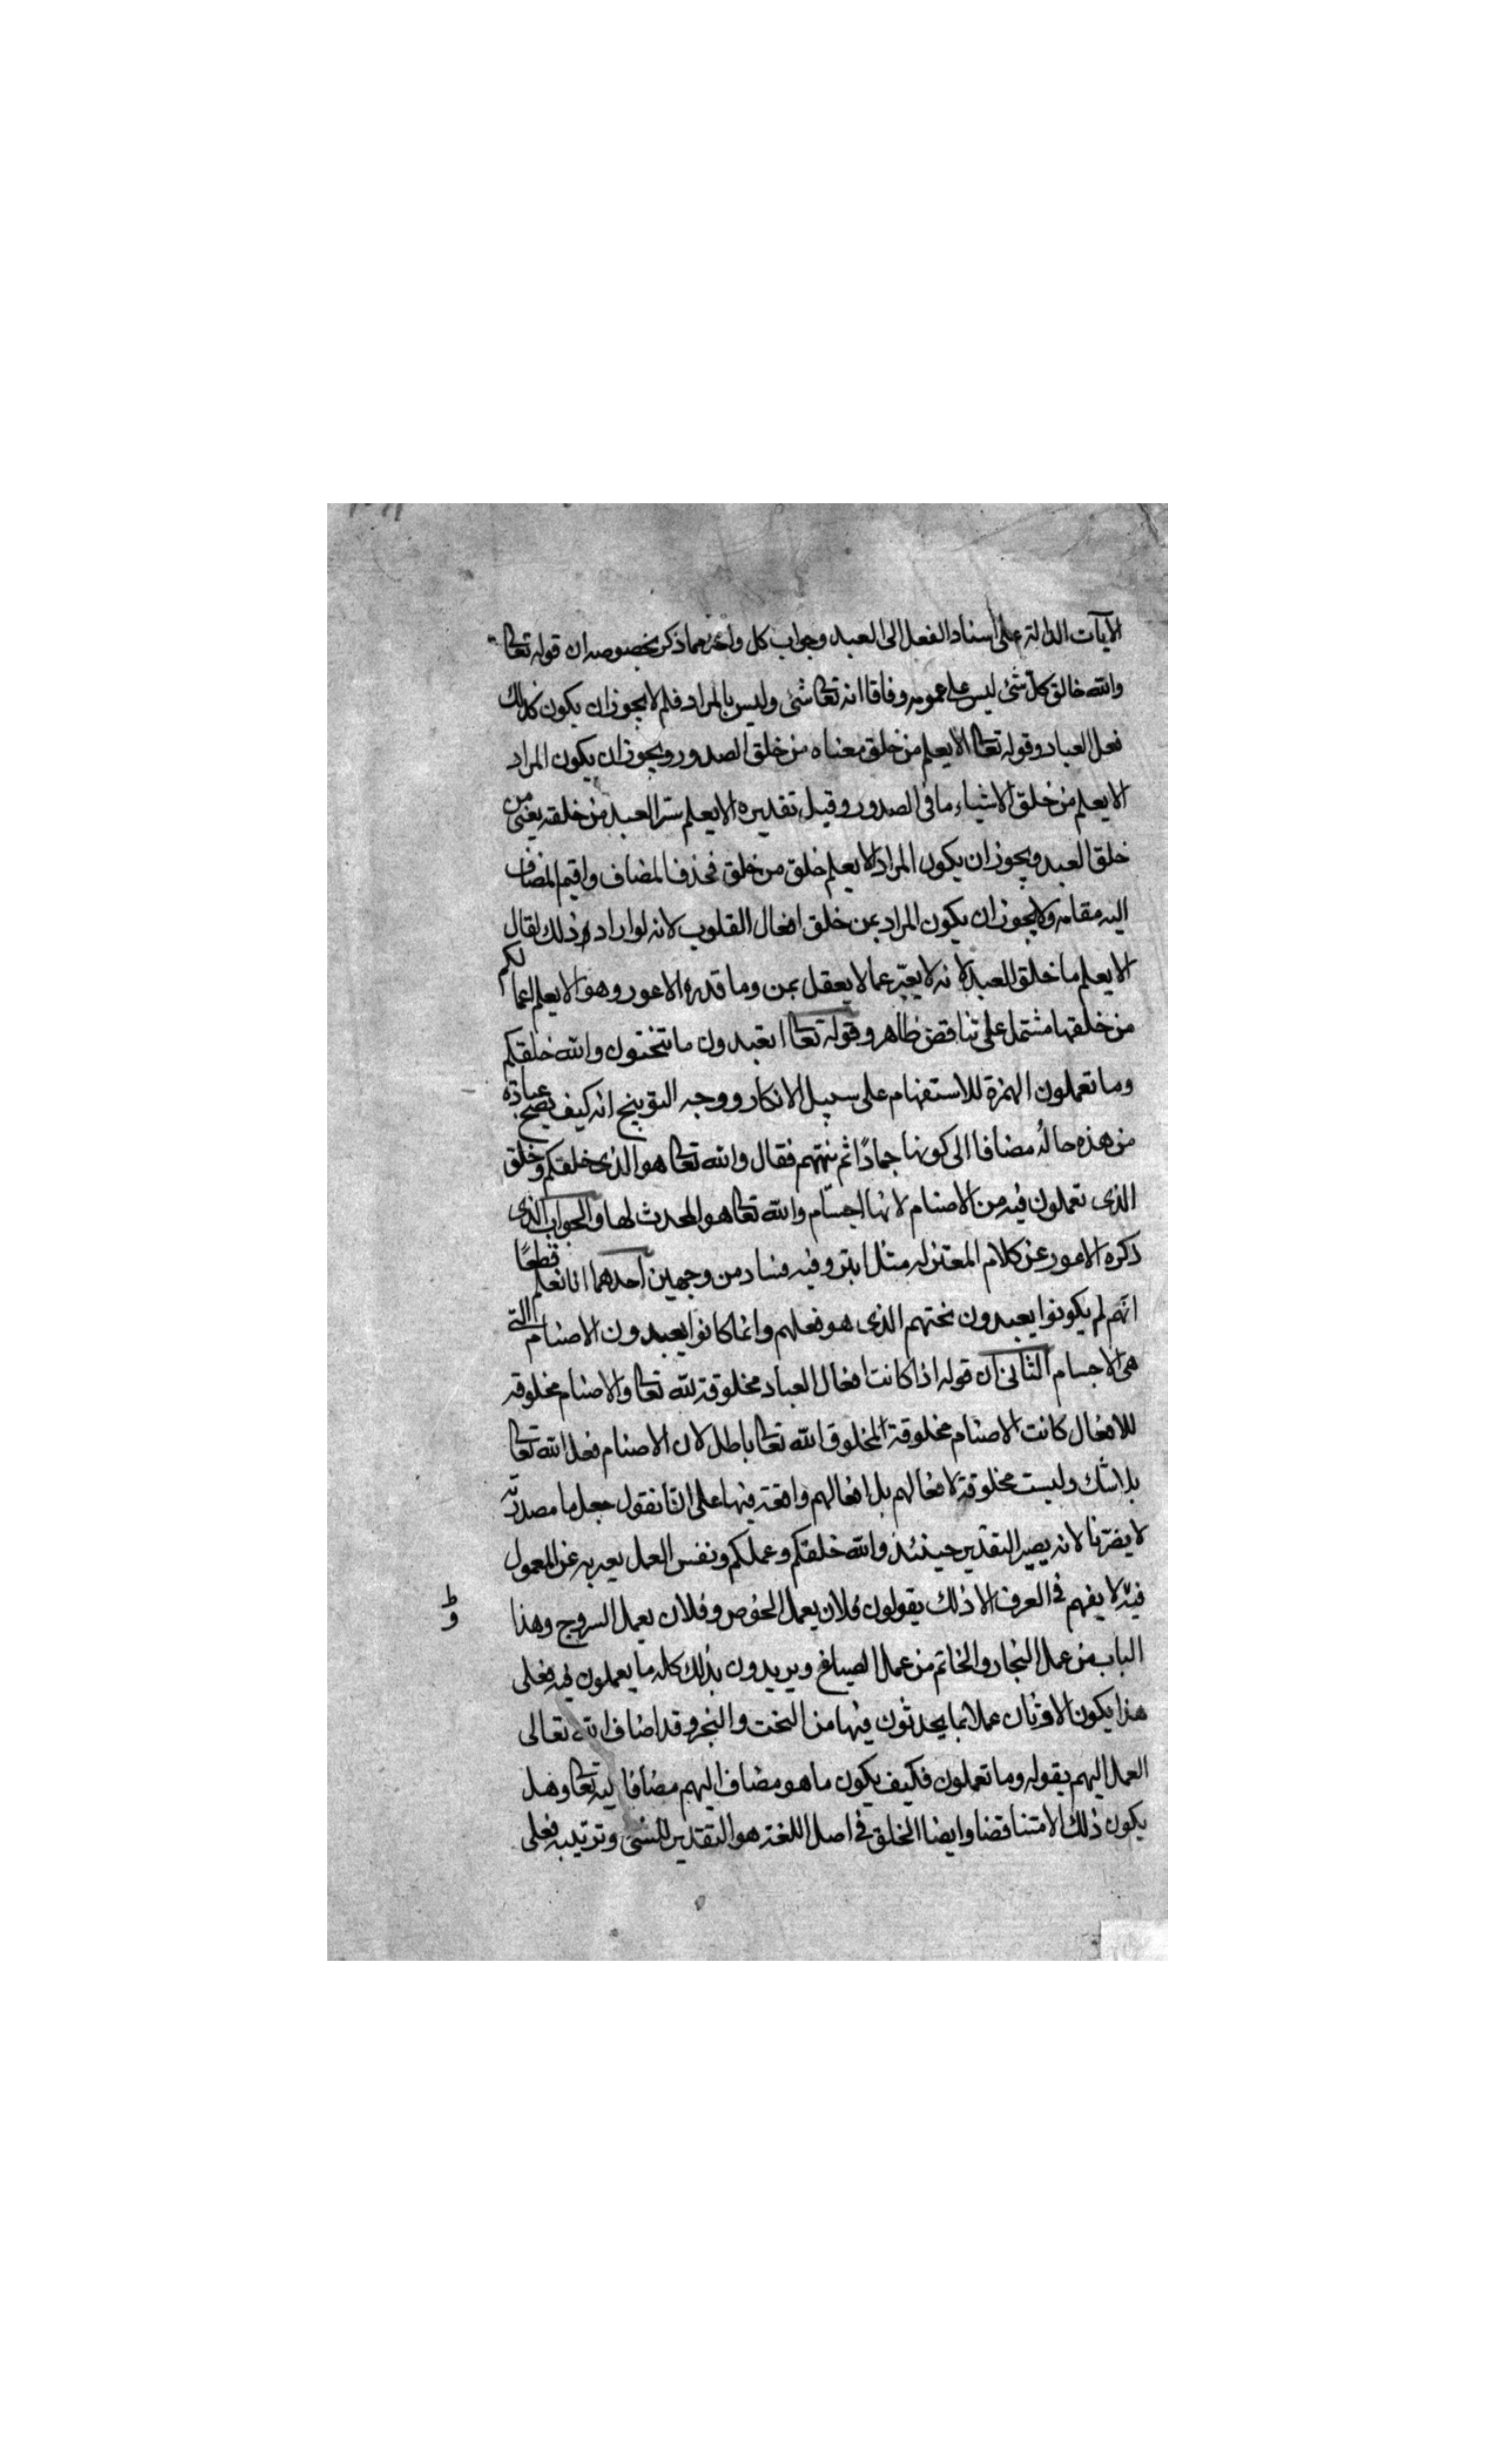 الآيات الدالة على اسناد الفعل الى العبد وجواب كل واحد مما ذكر بخصوصه ان قوله تعالى
والله خالق كل شئ ليس على عمومه وفاقا انه تعالى شئ وليس بالمراد فلم لا يجوز ان يكون كذلك
فعل العباد وقوله تعالى الا يعلم من خلق معناه من خلق الصدور ويجوز ان يكون المراد
الا يعلم من خلق الاشياء ما فى الصدور وقيل تقديره الا يعلم سر العبد من خلقه يعنى من
خلق العبد ويجوز ان يكون المراد الا يعلم خلق من خلق فحذف المضاف واقيم المضاف
اليه مقامه ولا يجوز ان يكون المراد بمن خلق افعال القلوب لانه لو اراد ذلك لقال
الا يعلم ما خلق للعبد لانه لا يعبّر عما لا يعقل بمن وما قدره الاعور وهو الا يعلم اعمالكم
من خلقها مشتمل على تناقض ظاهر وقوله تعالى اتعبدون ما تنحتون والله خلقكم
وما تعملون الهمزة للاستفهام على سبيل الانكار ووجه التوبيخ انه كيف يصح عبادة
من هذه حاله مضافا الى كونها جمادًا ثم نبّههم فقال والله تعالى هو الذى خلقكم وخلق
الذى تعملون فيه من الاصنام لانها اجسام والله تعالى هو المحدث لها والجواب الذى
ذكره الاعور عن كلام المعتزله مثل ابتر وفيه فساد من وجهين احدهما انا نعلم قطعًا
انهم لم يكونوا يعبدون نحتهم الذى هو فعلهم وانما كانوا يعبدون الاصنام التى
هى الاجسام الثانى ان قوله اذا كانت افعال العباد مخلوقة لله تعالى والاصنام مخلوقه
للافعال كانت الاصنام مخلوقة لمخلوق الله تعالى باطل لان الاصنام فعل الله تعالى
بلا شك وليست مخلوقة لافعالهم بل افعالهم واقعة فيها على انّا نقول جعل ما مصدريّه
لا يضرّنا لانه يصير التقدير حينئذ والله خلقكم وعملكم ونفس العمل يعبر به عن المعمول
فيه لا يفهم فى العرف الا ذلك يقولون فلان يعمل الخوص وفلان يعمل السروج وهذا
الباب من عمل النجار والخاتم من عمل الصياغ ويريدون بذلك كله ما يعملون فيه فعلى
هذا يكون الاوثان عملا بما يحدثون فيها من النحت والنجر وقد اضاف الله تعالى
العمل اليهم بقوله وما تعملون فكيف يكون ما هو مضاف اليهم مضافا اليه تعالى وهل
يكون ذلك الا متناقضا وايضا الخلق فى اصل اللغة هو التقدير للشئ وترتيبه فعلى